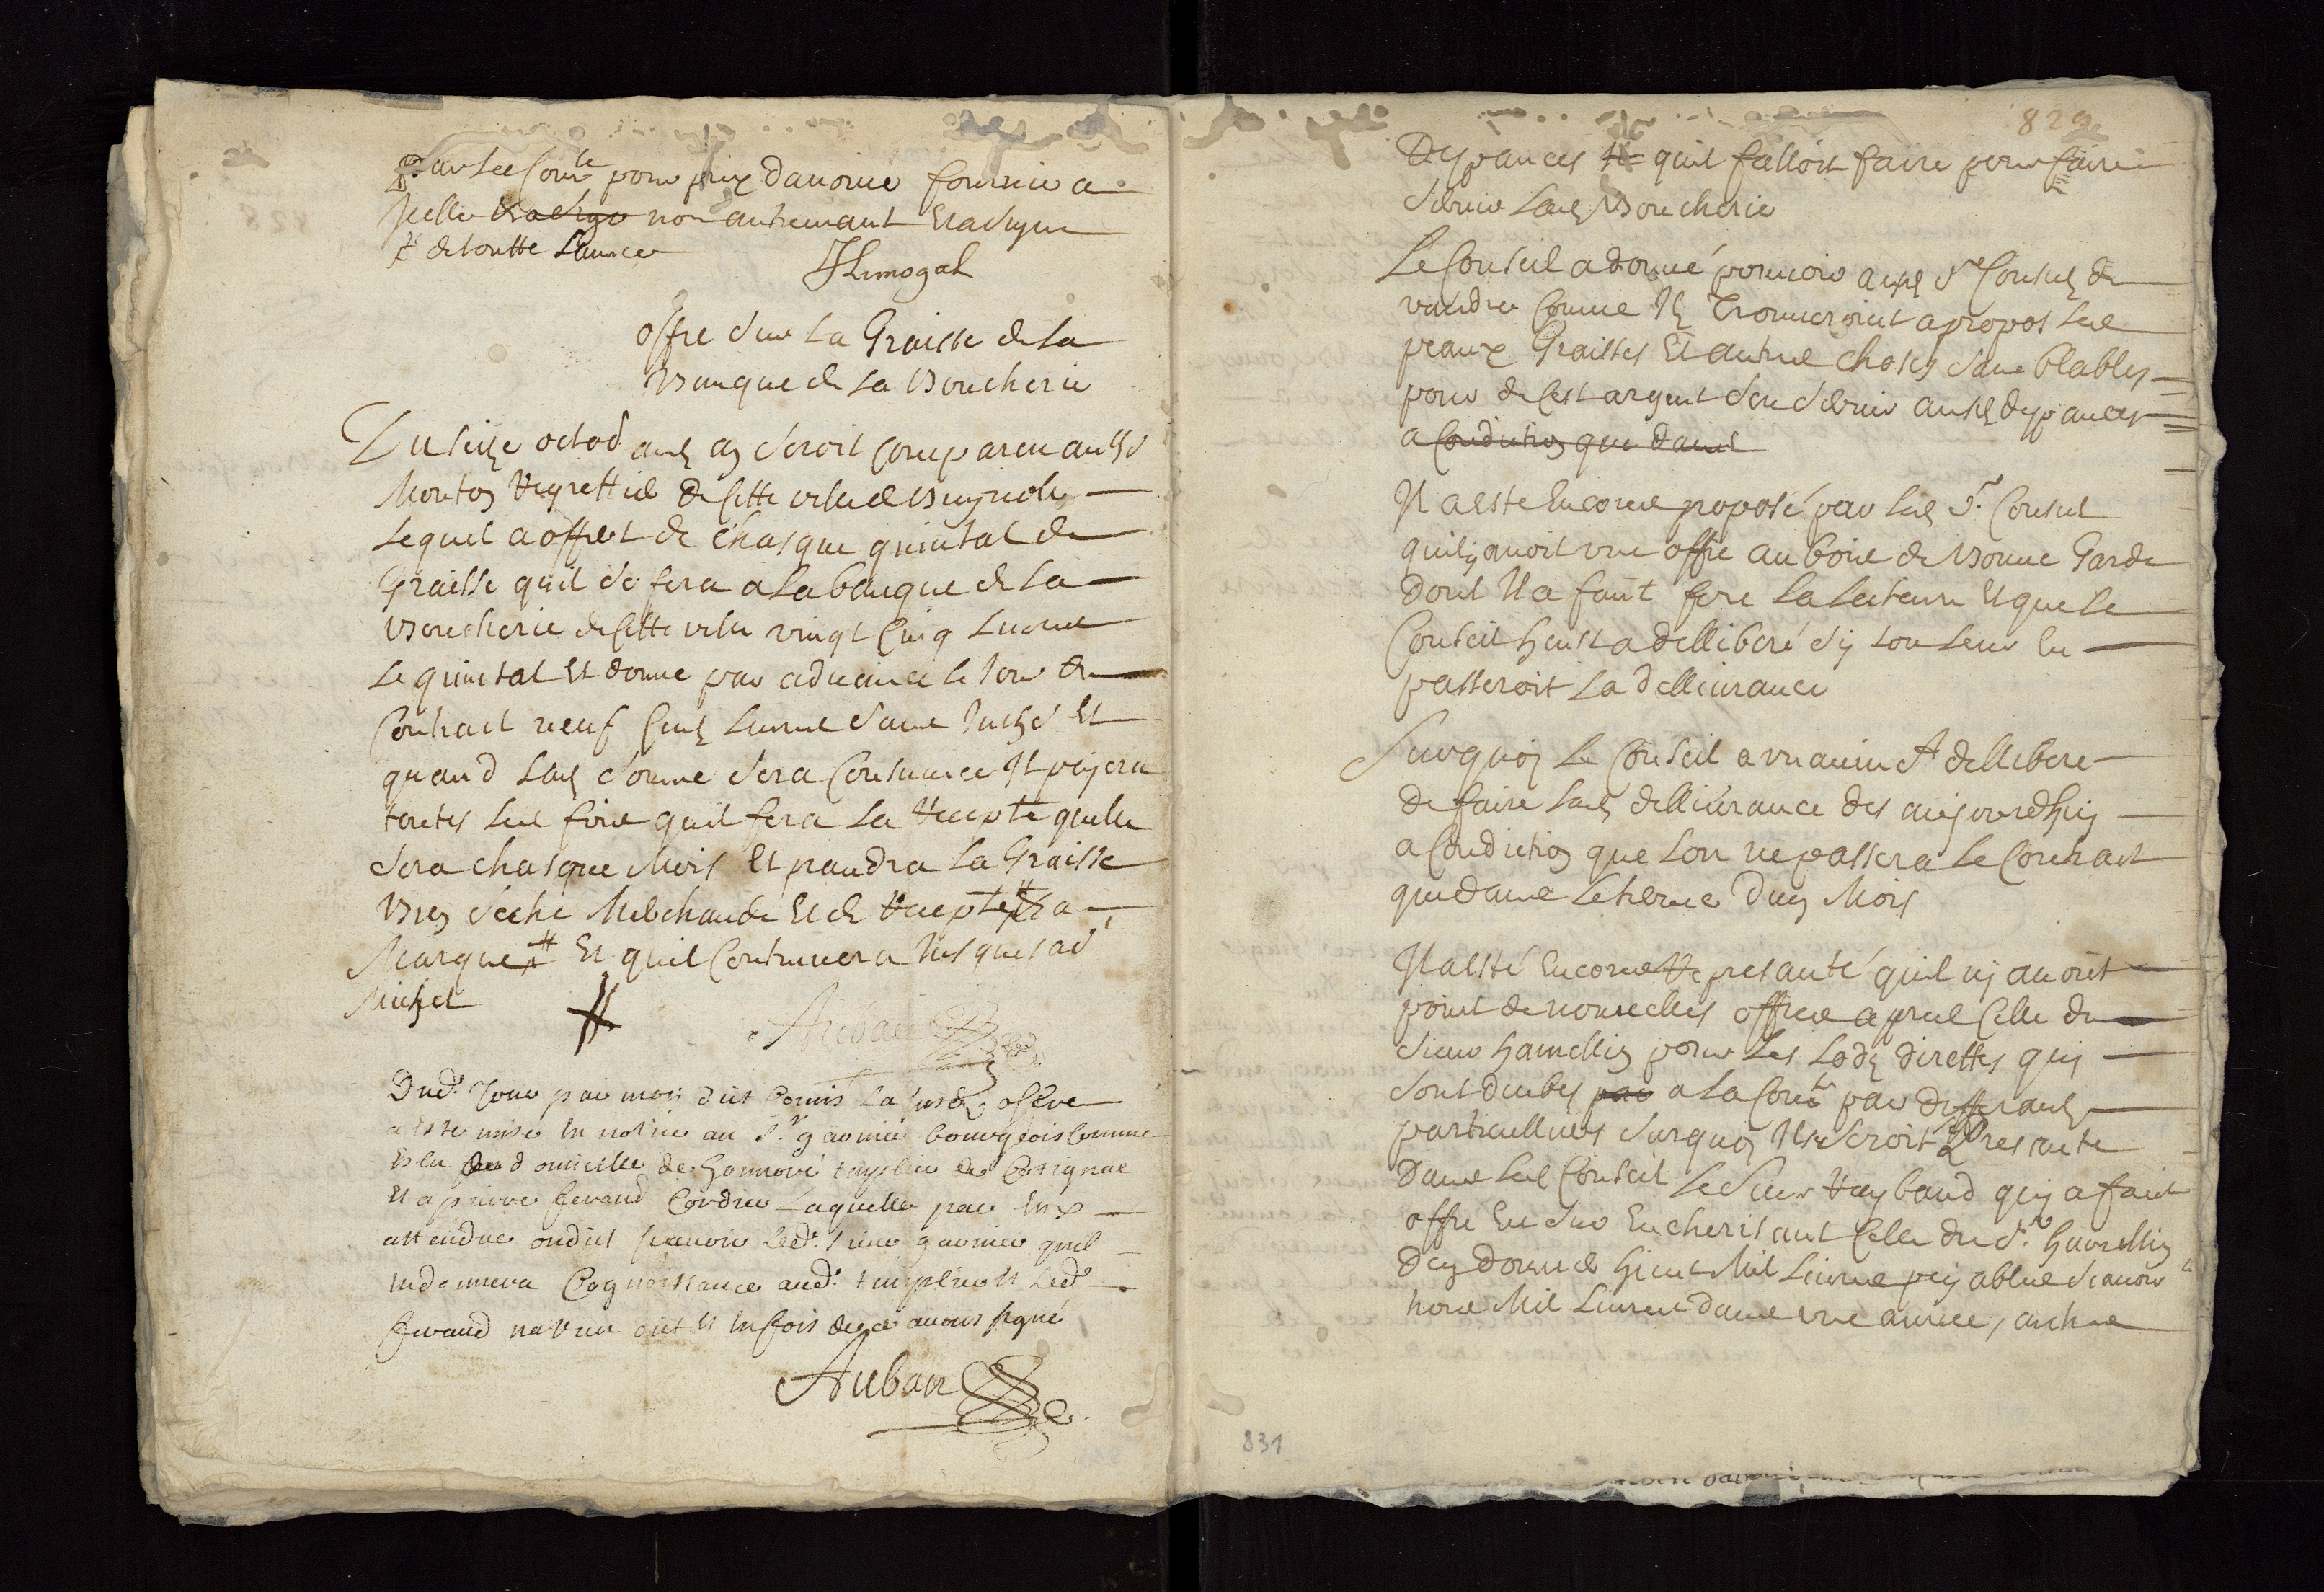 par lad Com.te pour prix davoine fournie a
jcelle non autremant Et a signe
de toutte lannee
Limogal
offre sur la Graisse de la
Banque de la Boucherie
Du seize octob aud an seroit comparu
Mouton de cette ville de Brignolle
Lequel a offert de chasque quintal de
Graisse quil se fera a la banque de la
Boucherie de cette ville vingt cinq Livres
Le quintal Et donne par advance le jour du
Contract neuf cens Livres dans et
quand lad somme sera Il payera
toutes les fois quil fera la Recepte quelle
sera chasque Mois Et prandra la Graisse
Bien seche Merchande Et de Recepte a
Marque Et quil Continuera Jusques a S
Michel
Auban
Dud. Jour par moy dit Comis la susd. ofre
a este mise en notice au S.r garnier bourgeois
de
Et a pierre feraud Cordier Laquelle par Eux
attendue ondit scavoir Led. sieur garnier quil
En donnera Cognoissance aud. Et Led.
feraud na rien dit Et En foy de ce avons signé
Auban
829
Depances quil falloit faire pour faire
servir lad Boucherie
Le Conseil a donné pouvoir ausd S.rs Consuls de
vandre comme Ilz Trouveroint a propos les
peaux Graisses Et autres choses samblables
pour de cest argent sen servir ausd depances
a condition que dans
Il a esté Encores proposé par led S.r Consul
quil y avoit une offre au bois de Bonne Garde
Dont Il a fait fere la lecteure Et que le
Conseil heust a delliberé sy lon leur En
passeroit la dellivrance
Surquoy Le Conseil a unanimet delliberé
De faire lad dellivrance des aujourdhuy
a condiction que lon ne passera le Contract
que dans le terme dun Mois
Il a esté Encores Represanté quil ny avoit
point de nouvelles offres apres celle du
sieur hamellin pour les Lods directes quy
sont deubes par a la Com.té par differants
particulliers surquoy Il se seroit presanté
Dans led Conseil Le Sieur Raybaud quy a fait
offre En sur Encherissant celle du S.r
Den donner huict Mil Livres payables scavoir
trois Mil Livres dans une annee, autres
831